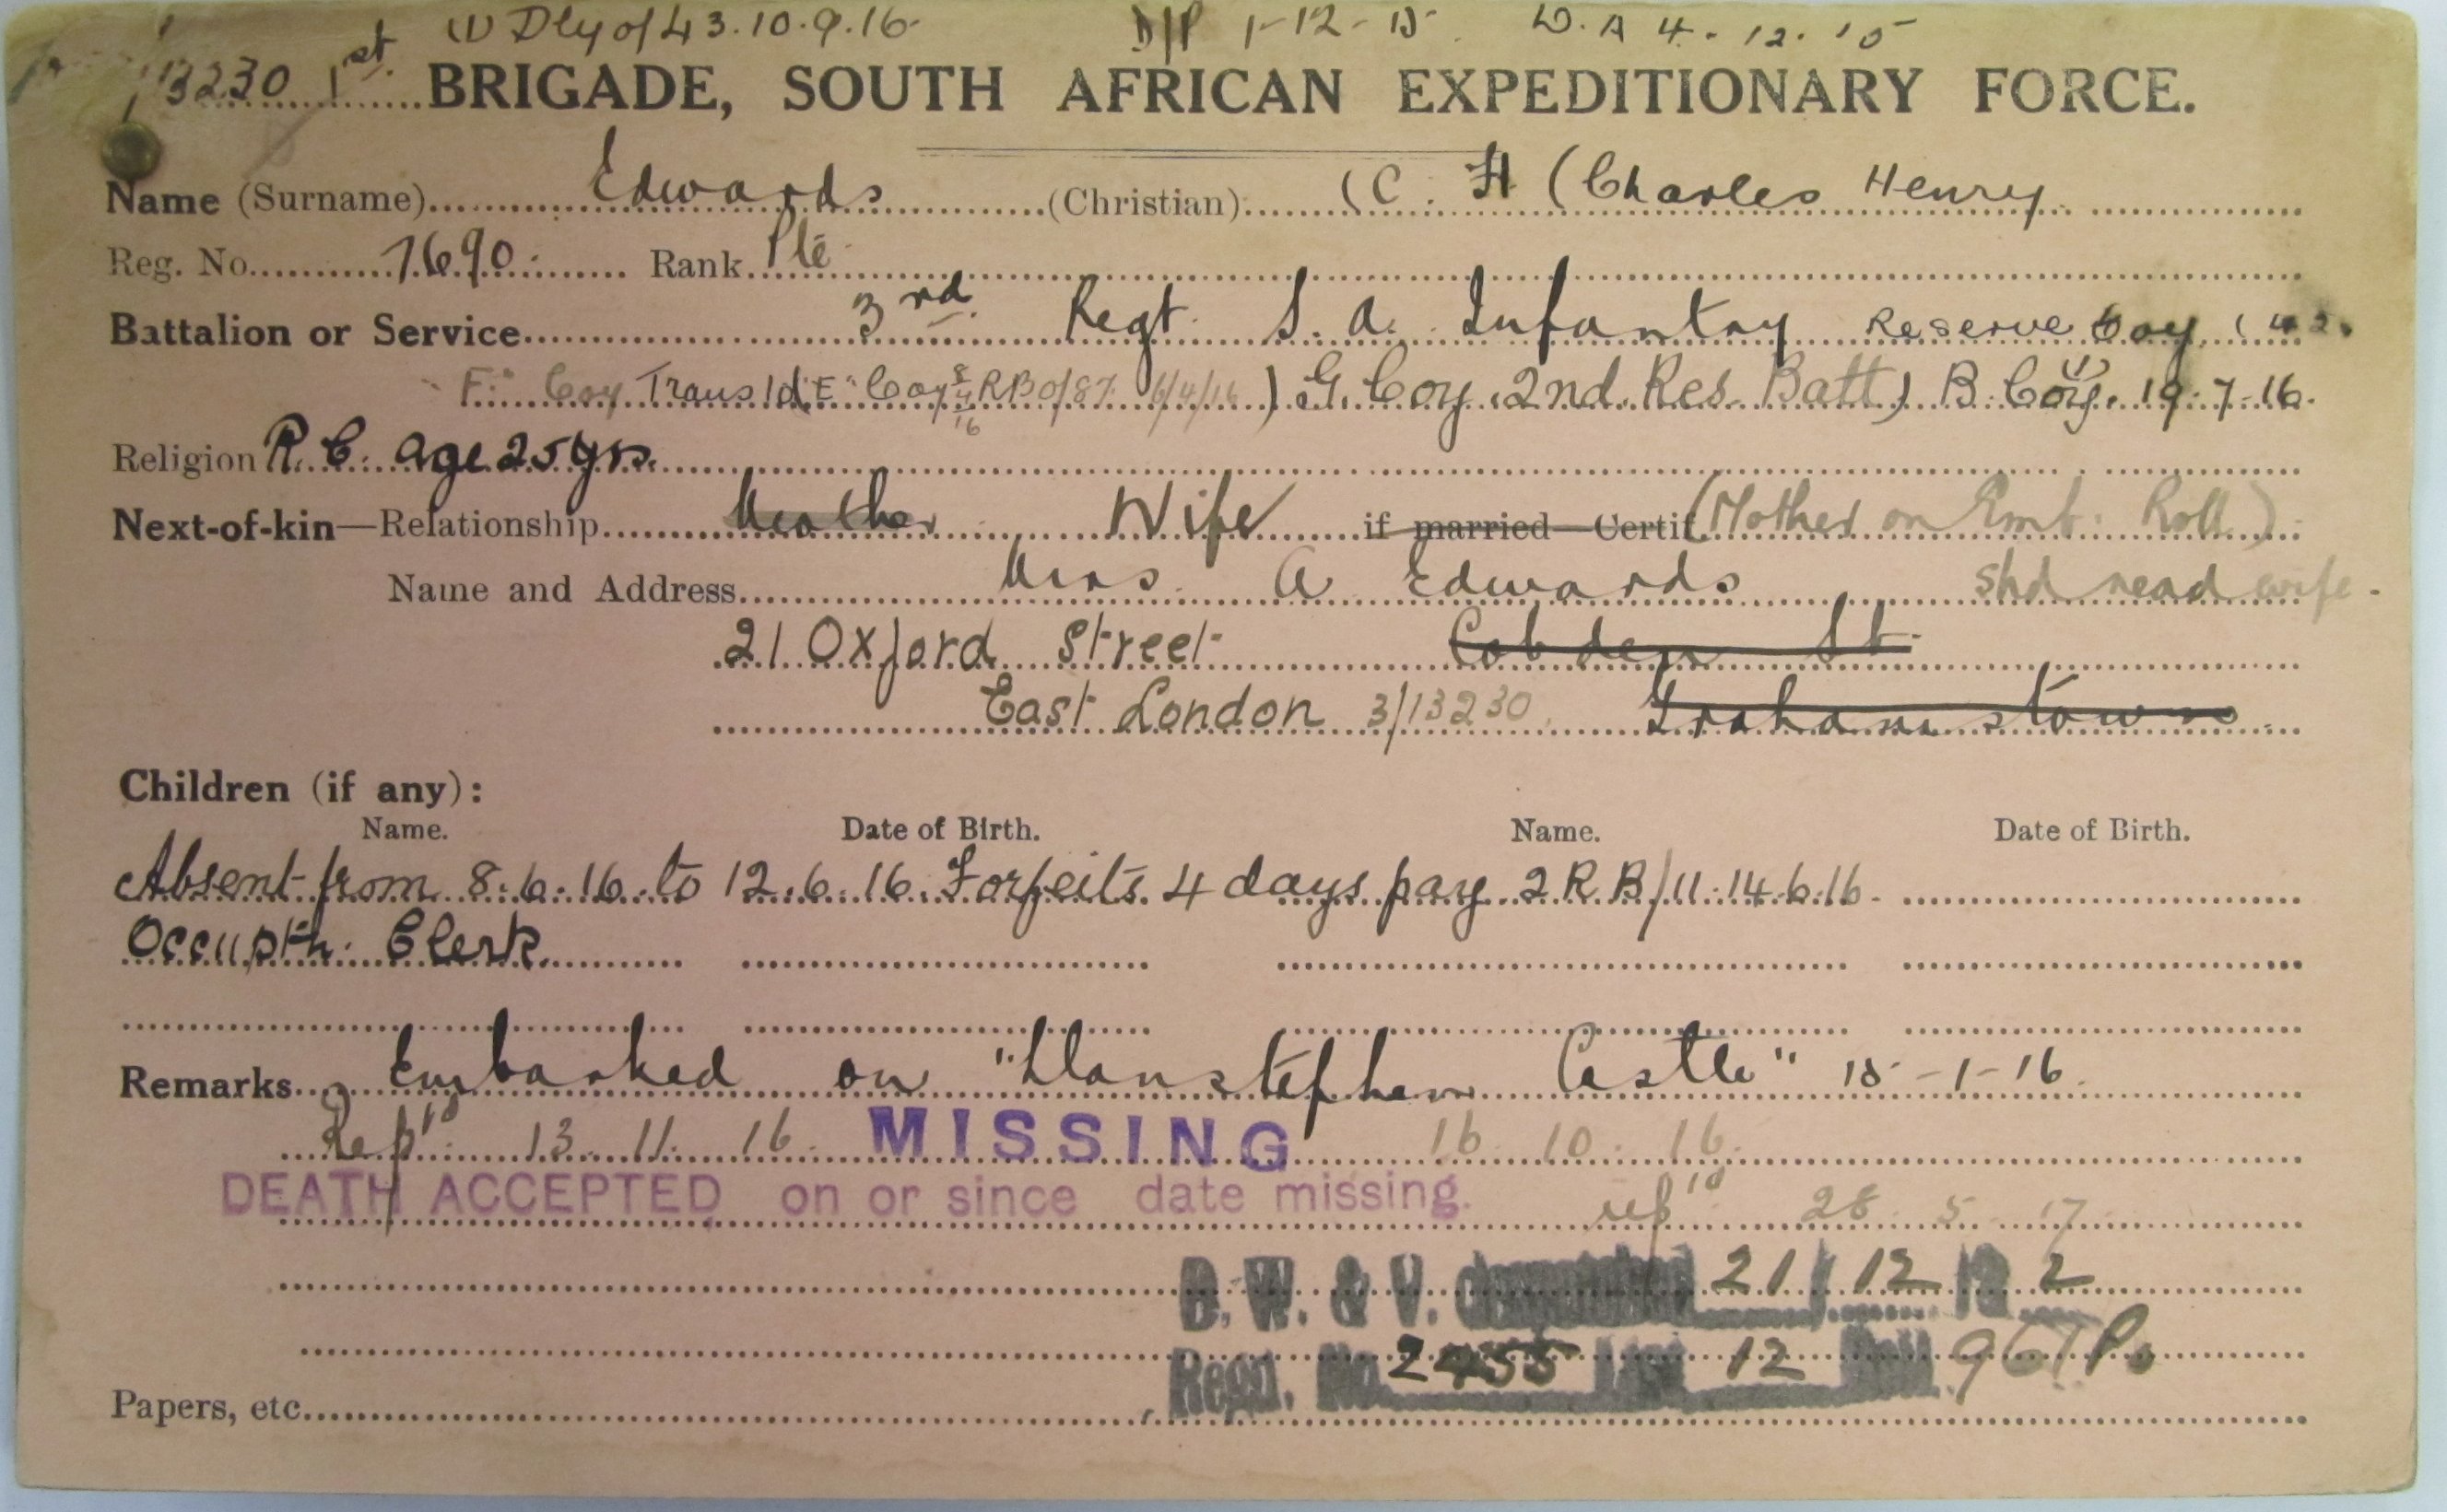 (1) Dly of 43. 10.9.16. D/P 1-12-15. D.A 4.12.15
13230 1st BRIGADE, SOUTH AFRICAN EXPEDITIONARY FORCE.
Name (Surname) Edwards (Christian) (C. H (Charles Henry
Reg. No. 7690. Rank Pte
Battalion or Service 3rd Regt. S. A. Infantry Reserve Coy.
"F" Coy Transld "E" Coy 8/4/16 RBO/87 6/4/16) G. Coy. 2nd. Res. Batt) B. Coy. (1) 19.7.16.
Religion R.C. age 25 yrs.
Next-of-kin—Relationship Mother Wife if married—Certif (Mother on Emb: Roll)
Name and Address Mrs. A Edwards shd read wife.
21 Oxford Street Cobden St.
East London 3/13230 Grahamstown
Children (if any):
Name. Date of Birth. Name. Date of Birth.
Absent from 8.6.16. to 12.6.16. Forfeits. 4 days pay 2 R B/11. 14.6.16.
Occuptn: Clerk.
Remarks Embarked on "Llanstephen Castle" 15-1-16.
Repd. 13. 11. 16. MISSING 16 10 16.
DEATH ACCEPTED on or since date missing. repd 28 5 17
B. W. & V. 21/12/192
Regn. No. 2455 List 12 Roll 96/Ps
Papers, etc.